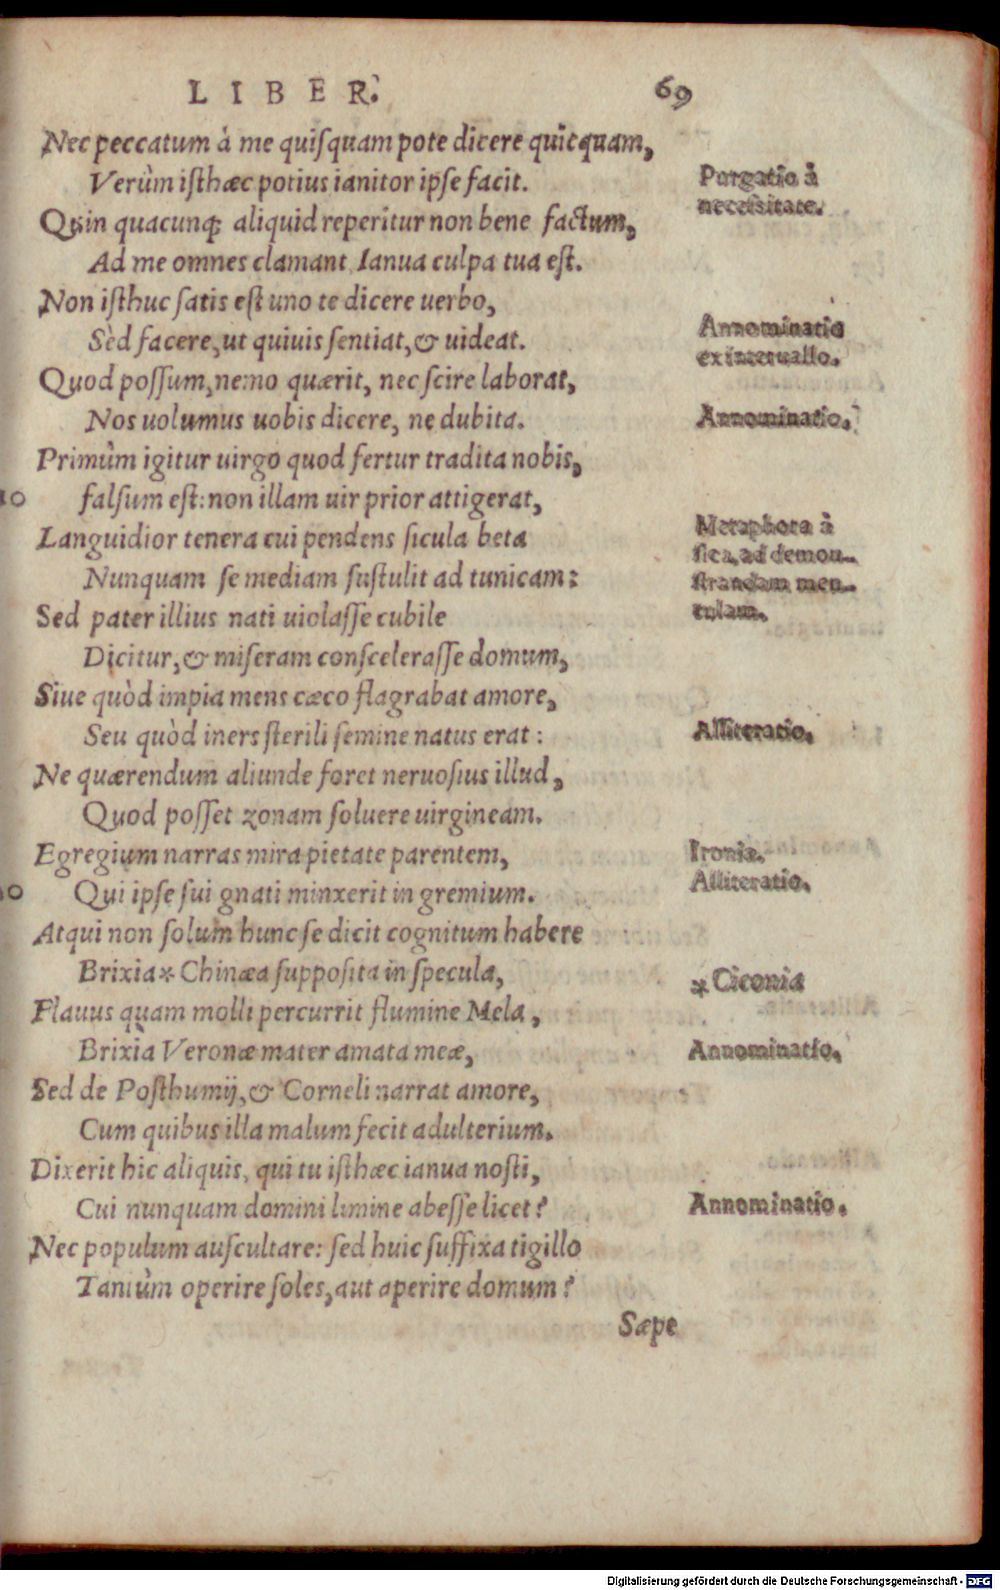 LIBER. 69
Nec peccatum à me quisquam pote dicere quicquam,
Verùm isthæc potius ianitor ipse facit.
Purgatio à
necessitate.
Quin quacunq; aliquid reperitur non bene factum,
Ad me omnes clamant Ianua culpa tua est.
Non isthuc satis est uno te dicere uerbo,
Sed facere, ut quiuis sentiat, & uideat.
Annominatio
ex interuallo.
Quod possum, nemo quærit, nec scire laborat,
Nos uolumus uobis dicere, ne dubita.
Annominatio.
Primùm igitur uirgo quod fertur tradita nobis,
10 falsum est: non illam uir prior attigerat,
Languidior tenera cui pendens sicula beta
Nunquam se mediam sustulit ad tunicam:
Metaphora à
sica, ad demon-
strandam men-
tulam.
Sed pater illius nati uiolasse cubile
Dicitur, & miseram conscelerasse domum,
Siue quòd impia mens cæco flagrabat amore,
Seu quòd iners sterili semine natus erat:
Alliteratio.
Ne quærendum aliunde foret neruosius illud,
Quod posset zonam soluere uirgineam.
Egregium narras mira pietate parentem,
Ironia.
Qui ipse sui gnati minxerit in gremium.
Alliteratio.
Atqui non solum hunc se dicit cognitum habere
Brixia* Chinæa supposita in specula,
*Ciconia
Flauus quam molli percurrit flumine Mela,
Brixia Veronæ mater amata meæ,
Annominatio.
Sed de Posthumij, & Corneli narrat amore,
Cum quibus illa malum fecit adulterium.
Dixerit hic aliquis, qui tu isthæc ianua nosti,
Cui nunquam domini limine abesse licet?
Annominatio.
Nec populum auscultare: sed huic suffixa tigillo
Tantùm operire soles, aut aperire domum?
Sæpe
Digitalisierung gefördert durch die Deutsche Forschungsgemeinschaft - DFG